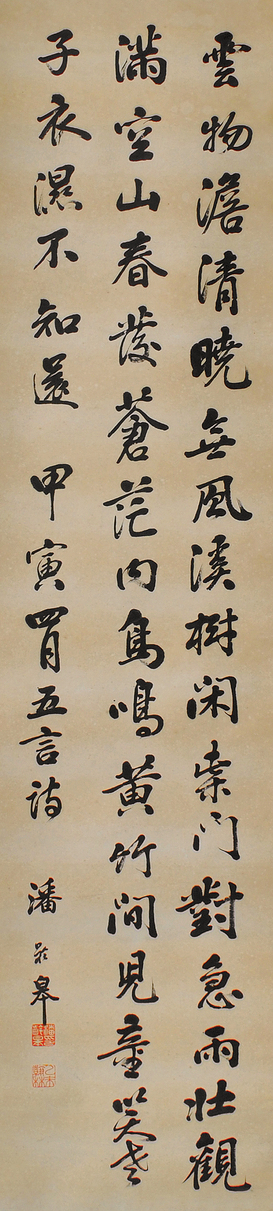 雲物澹清曉無風溪樹閑柴門對急雨壯觀
滿空山春發蒼茫内鳥鳴黃竹間兒童笑老
子衣濕不知還 甲寅四月五言詩 潘齡皋